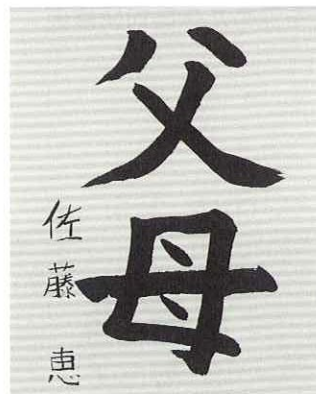 父母
佐藤恵